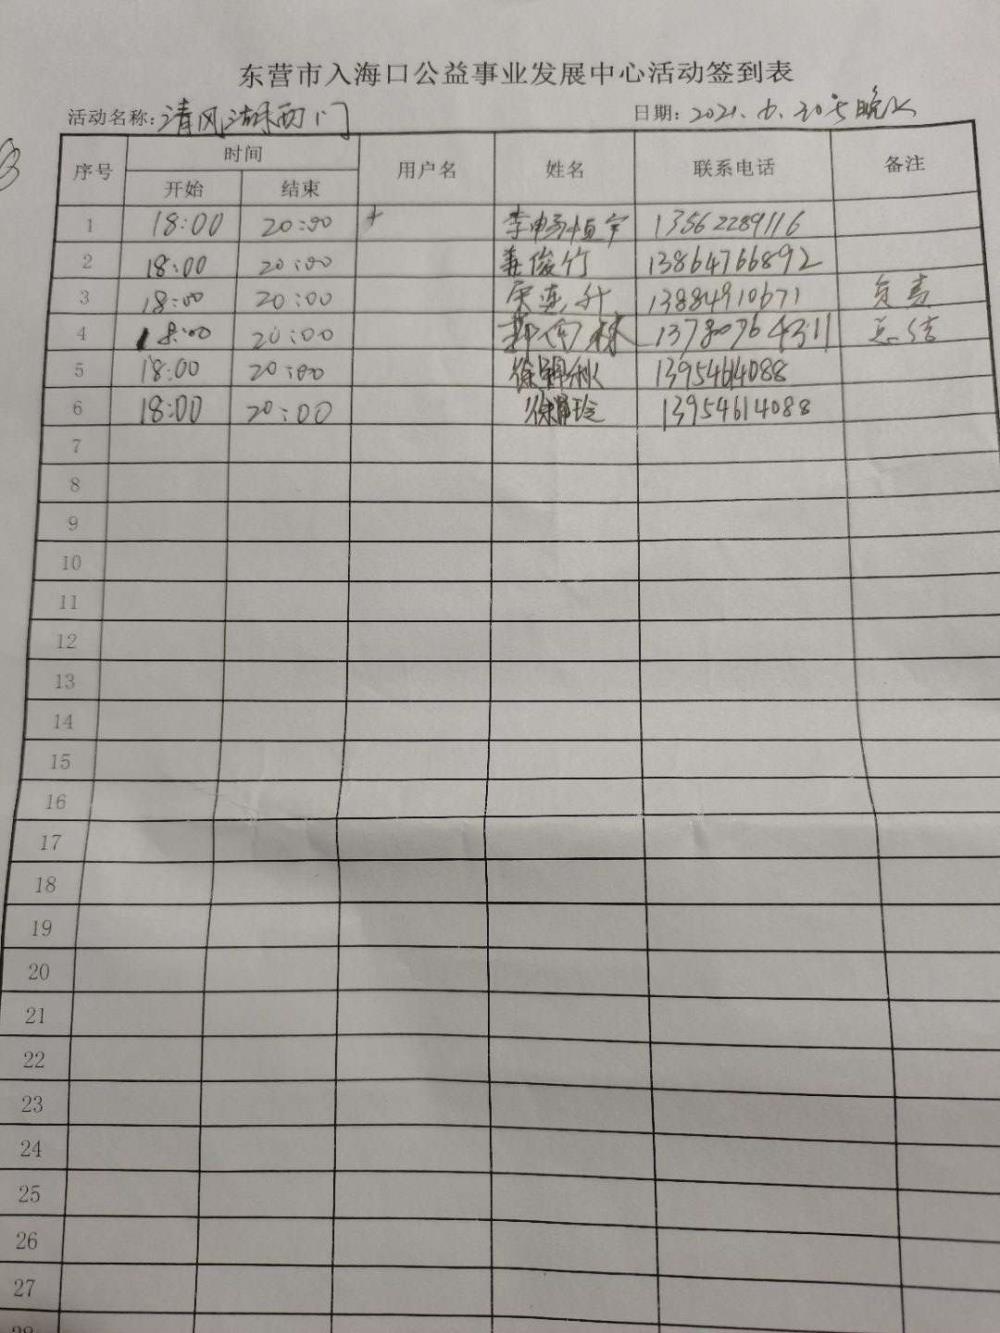 东营市入海口公益事业发展中心活动签到表
活动名称:清风湖西门 日期: 2021.6.20号晚上
序号 时间 用户名 姓名 联系电话 备注
开始 结束
1 18:00 20:00 李 宇 13562289116
2 18:00 20:00 姜俊竹 13864766892
3 18:00 20:00 连升 13884910671 负责
4 18:00 20:00 林 13780764311 总结
5 18:00 20:00 徐 秋 13954614088
6 18:00 20:00 徐 玲 13954614088
7
8
9
10
11
12
13
14
15
16
17
18
19
20
21
22
23
24
25
26
27
28